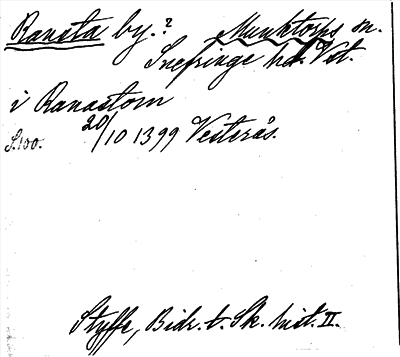 Ransta by.? Munktorps sn.
Snefringe hd. Vst.
i Ranastom
S. 100. 20/10 1399 Vesterås.
Styffe, Bidr. t. Sk. hist. II.